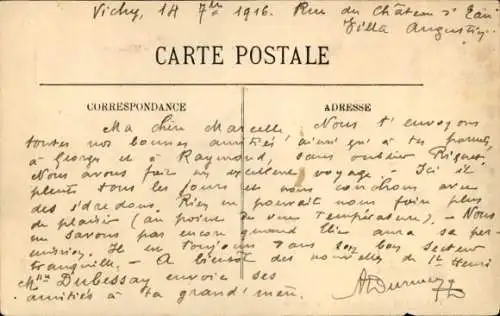 Vichy, 14 7bre 1916. Rue du Château d'Eau
Villa Augustin.
CARTE POSTALE
CORRESPONDANCE
ADRESSE
Ma chère Marcelle, Nous t'envoyons
toutes nos bonnes amitiés ainsi qu'à tes parents,
à Georges et à Raymond, sans oublier Riquet.
Nous avons fait un excellent voyage - Ici il
pleut tous les jours et nous couchons avec
des édredons. Rien ne pouvait nous faire plus
de plaisir (au point de vue Température). - Nous
ne savons pas encore quand Élie aura sa per-
mission. Il est toujours dans son bon secteur
tranquille. - A bientôt des nouvelles de Henri
Mme Dubessay envoie ses
amitiés à ta grand'mère.